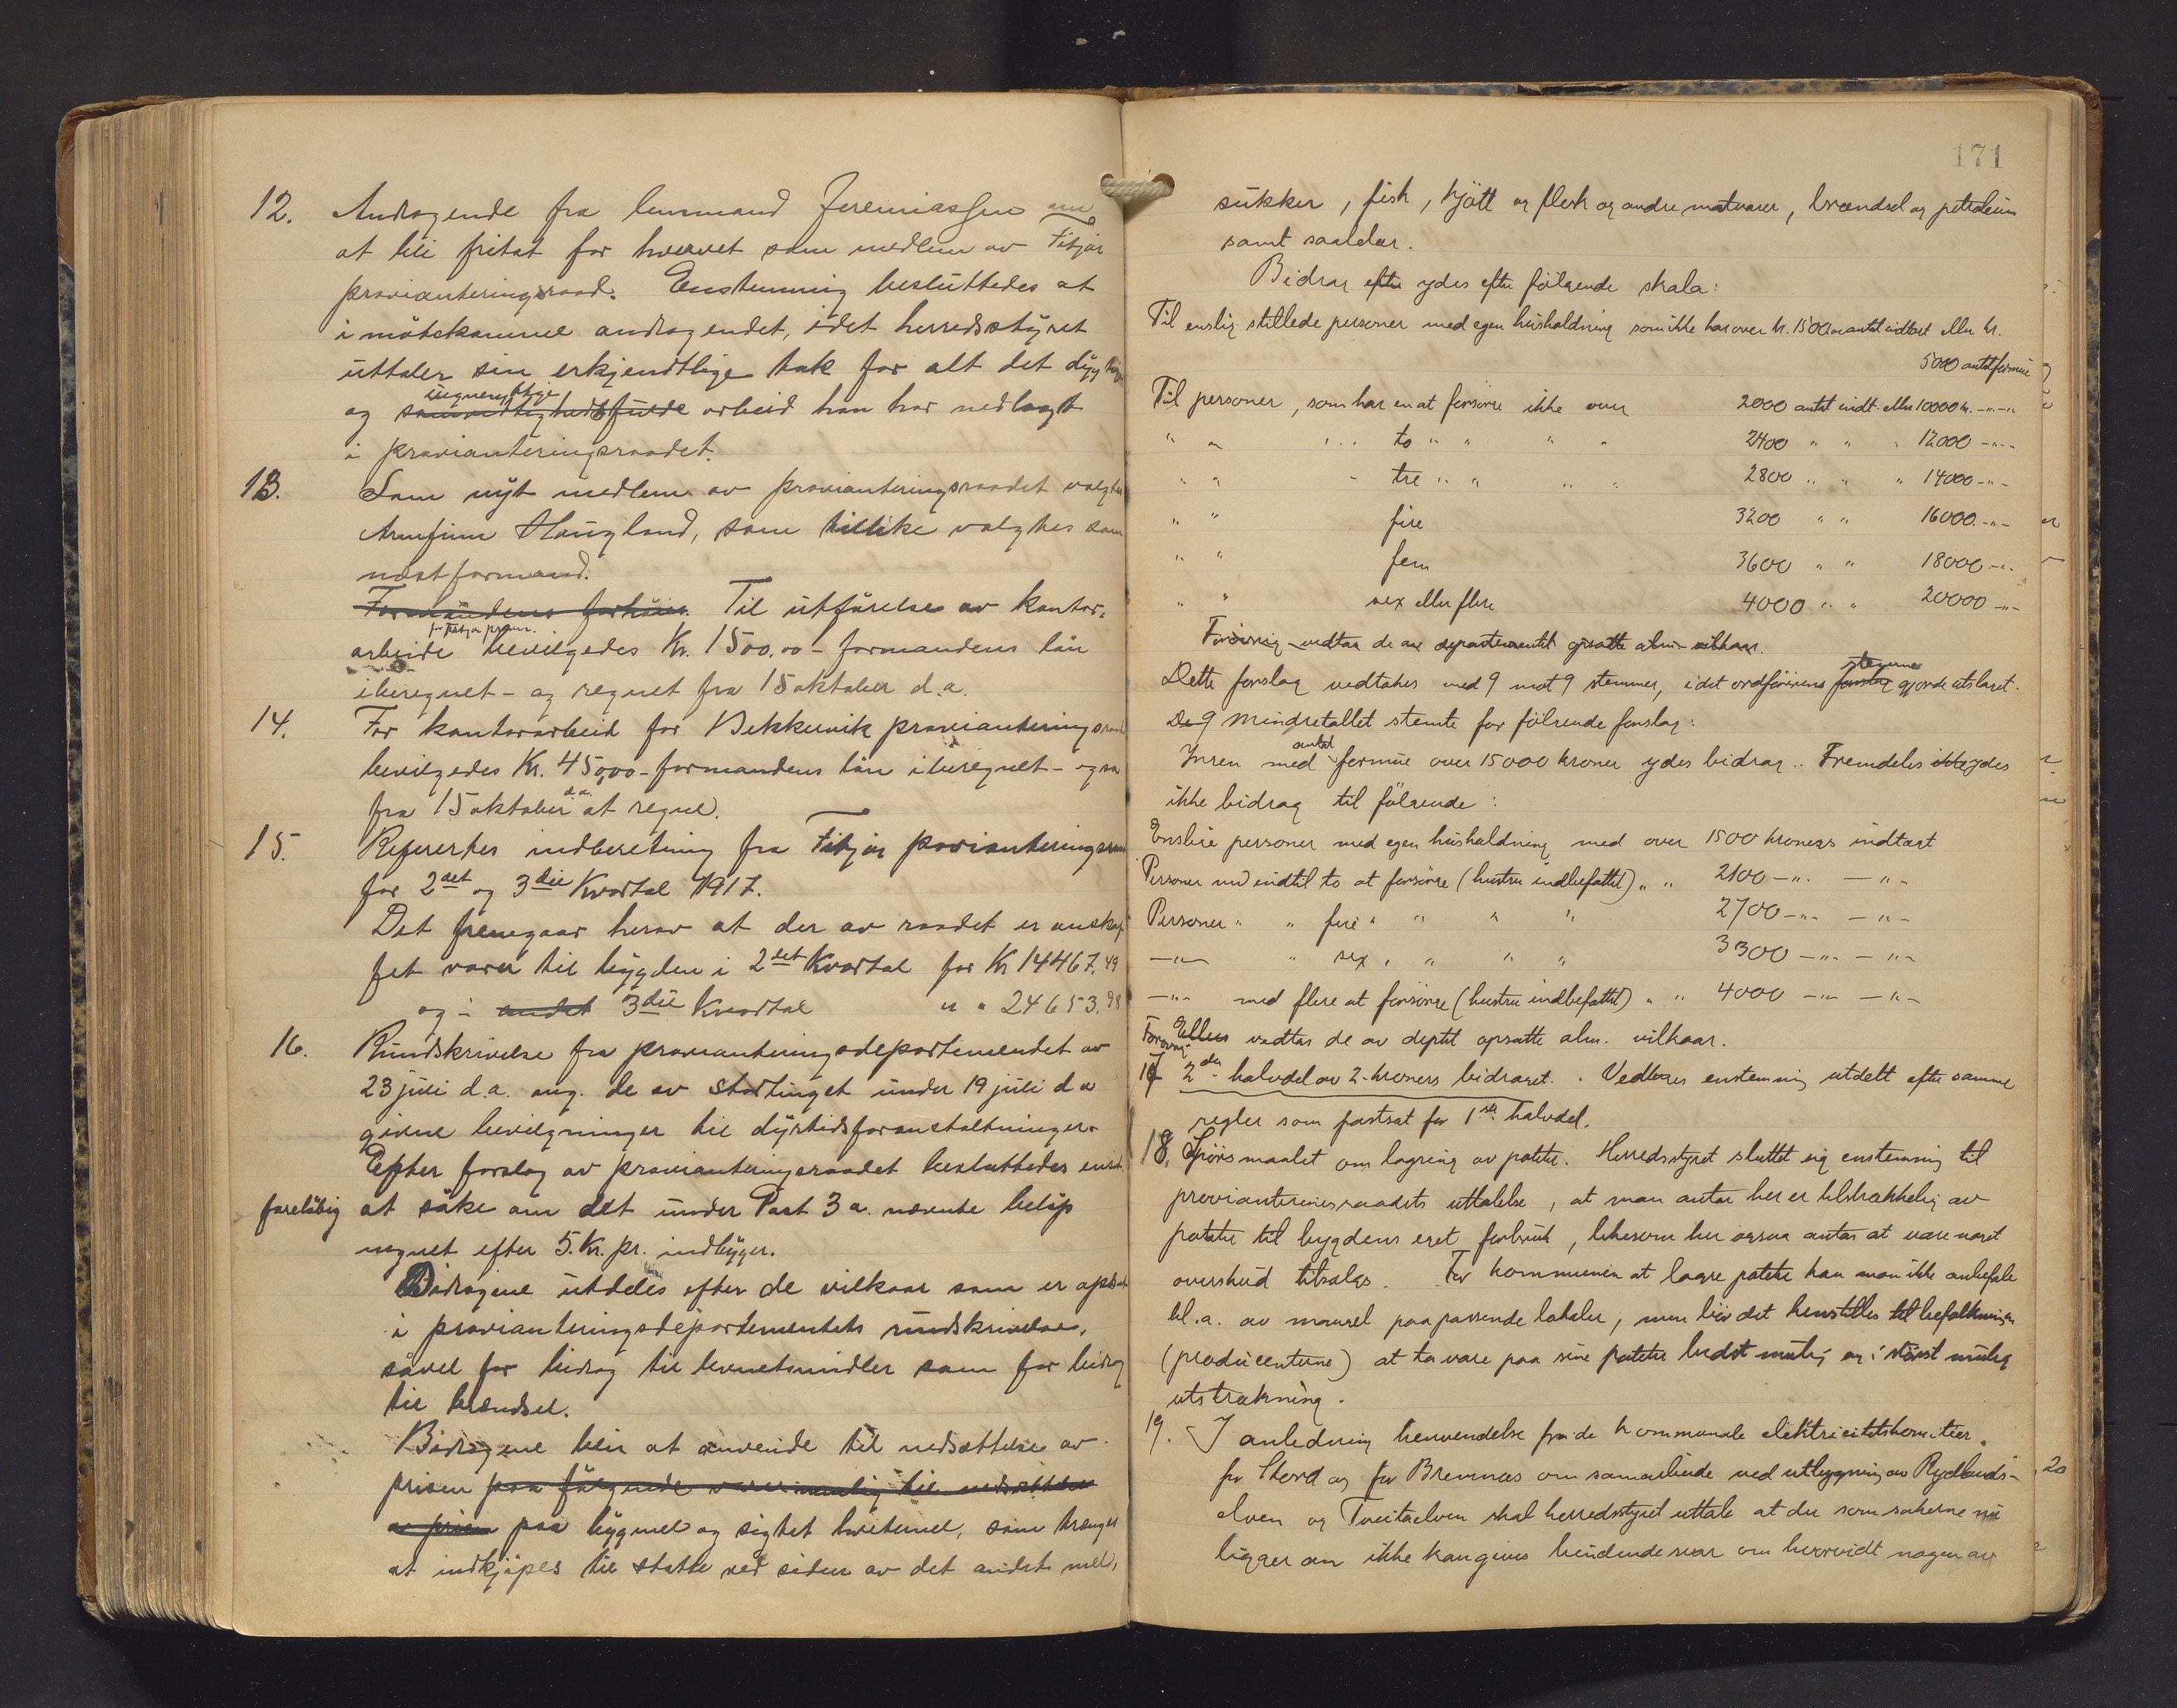 12. Andragende fra lensmand Jeremiassen om
at bli fritat for hvervet som medlem av Fitjar
provianteringsraad. Enstemmig besluttedes at
imötekomme andragendet, idet herredsstyret
uttaler sin erkjendtlige tak for alt det dygtige
og samvittighedsfulde arbeid han har nedlagt
i provianteringsraadet.
13. Som nyt medlem av provianteringsraadet valgtes
Arnfinn Haugland, som tillike valgtes som
næstformand.
Formandens forhöies. Til utförelse av kontor-
arbeide for Fitjar prov. bevilgedes Kr. 1500.00 - formandens lön
iberegnet - og regnet fra 15 oktober d.a.
14. For kontorarbeid for Bekkervik provianteringsraad
bevilgedes Kr. 450,00 - formandens lön iberegnet - ogsaa
fra 15 oktober d.a. at regne.
15. Referertes indberetning fra Fitjar provianteringsraad
for 2det og 3die Kvartal 1917.
Det fremgaar herav at der av raadet er anskaf
fet varer til bygden i 2det Kvartal for Kr 14467.49
og i andet 3die Kvartal " " 24653.98
16. Rundskrivelse fra provianteringsdepartementet av
23 juli d.a. ang. de av stortinget under 19 juli d.a
givne bevilgninger til dyrtidsforanstaltninger.
Efter forslag av provianteringsraadet besluttedes enst.
foreløbig at söke om det under Post 3 a. nævnte belöp
regnet efter 5. Kr. pr. indbygger.
Bidragene utdeles efter de vilkaar som er opsat
i provianteringsdepartementets rundskrivelse,
såvel for bidrag til levnetsmidler som for bidrag
til brændsel.
Bidragene blir at anvende til nedsættelse av
prisen paa fölgende varer nemlig til nedsættelse
av prisen paa bygmel og sigtet hvetemel, som trænges
at indkjöpes til støtte ved siden av det andet mel,
171
sukker, fisk, kjött og flesk og andre matvarer, brændsel og petroleum
samt saalelær.
Bidrag efter ydes efter fölgende skala:
Til enslig stillede personer med egen husholdning som ikke har over kr. 1500 antat indtægt eller kr.
5000 antat formue
Til personer, som har en at forsörge ikke over 2000 antat indt. eller 10000 kr. -"-"
" " " to " " " " 2400 " " " 12000 -"-
" " " tre " " " " 2800 " " " 14000 -"-
" " fire 3200 " " 16000 -"-
" " fem 3600 " " 18000 -"-
" " sex eller flere 4000 " " 20000 -"-
Forövrig vedtaa de av departementet opsatte alm. vilkaar.
Dette forslag vedtokes med 9 mot 9 stemmer, idet ordförerens forslag stemme gjorde utslaget.
De 9 Mindretallet stemte for fölgende forslag:
Ingen med antat formue over 15000 kroner ydes bidrag. Fremdeles ikke ydes
ikke bidrag til fölgende:
Enslige personer med egen husholdning med over 1500 kroners indtægt
Personer med indtil to at forsörge (hustru indbefattet) " " 2100 -"- -"-
Personer " " fire " " " " 2700 -"- -"-
-"- " sex " " " " 3300 -"- -"-
-"- med flere at forsörge (hustru indbefattet) " " 4000 -"- -"-
Forøvrig Ellers vedtas de av deptet opsatte alm. vilkaar.
17 2den halvdel av 2-kroners bidraget. Vedtoges enstemmig utdelt efter samme
regler som fastsat for 1ste halvdel.
18. Spörsmaalet om lagring av poteter. Herredsstyret sluttet sig enstemmig til
provianteringsraadets uttalelse, at man antar her er tilstrækkelig av
poteter til bygdens eget forbruk, likesom her ogsaa antas at være noget
overskud tilsalgs. For kommunen at lagre poteter kan man ikke anbefale
bl.a. av mangel paa passende lokaler, men bör det henstilles til befolkningen
(producenterne) at ta vare paa sine poteter bedst mulig og i störst mulig
utstrækning.
19. I anledning henvendelse fra de kommunale elektricitetskomiteer
for Stord og for Bremnes om samarbeide ved utbygning av Rydlands-
elven og Tveitaelven skal herredsstyret uttale at der som sakerne nu
ligger an ikke kan gives bindende svar om hvorvidt nogen av